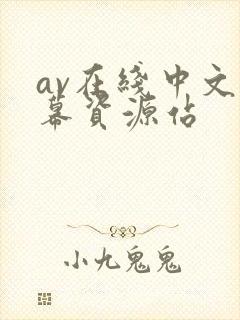 av在綫中文
幕資源佔
小九鬼鬼